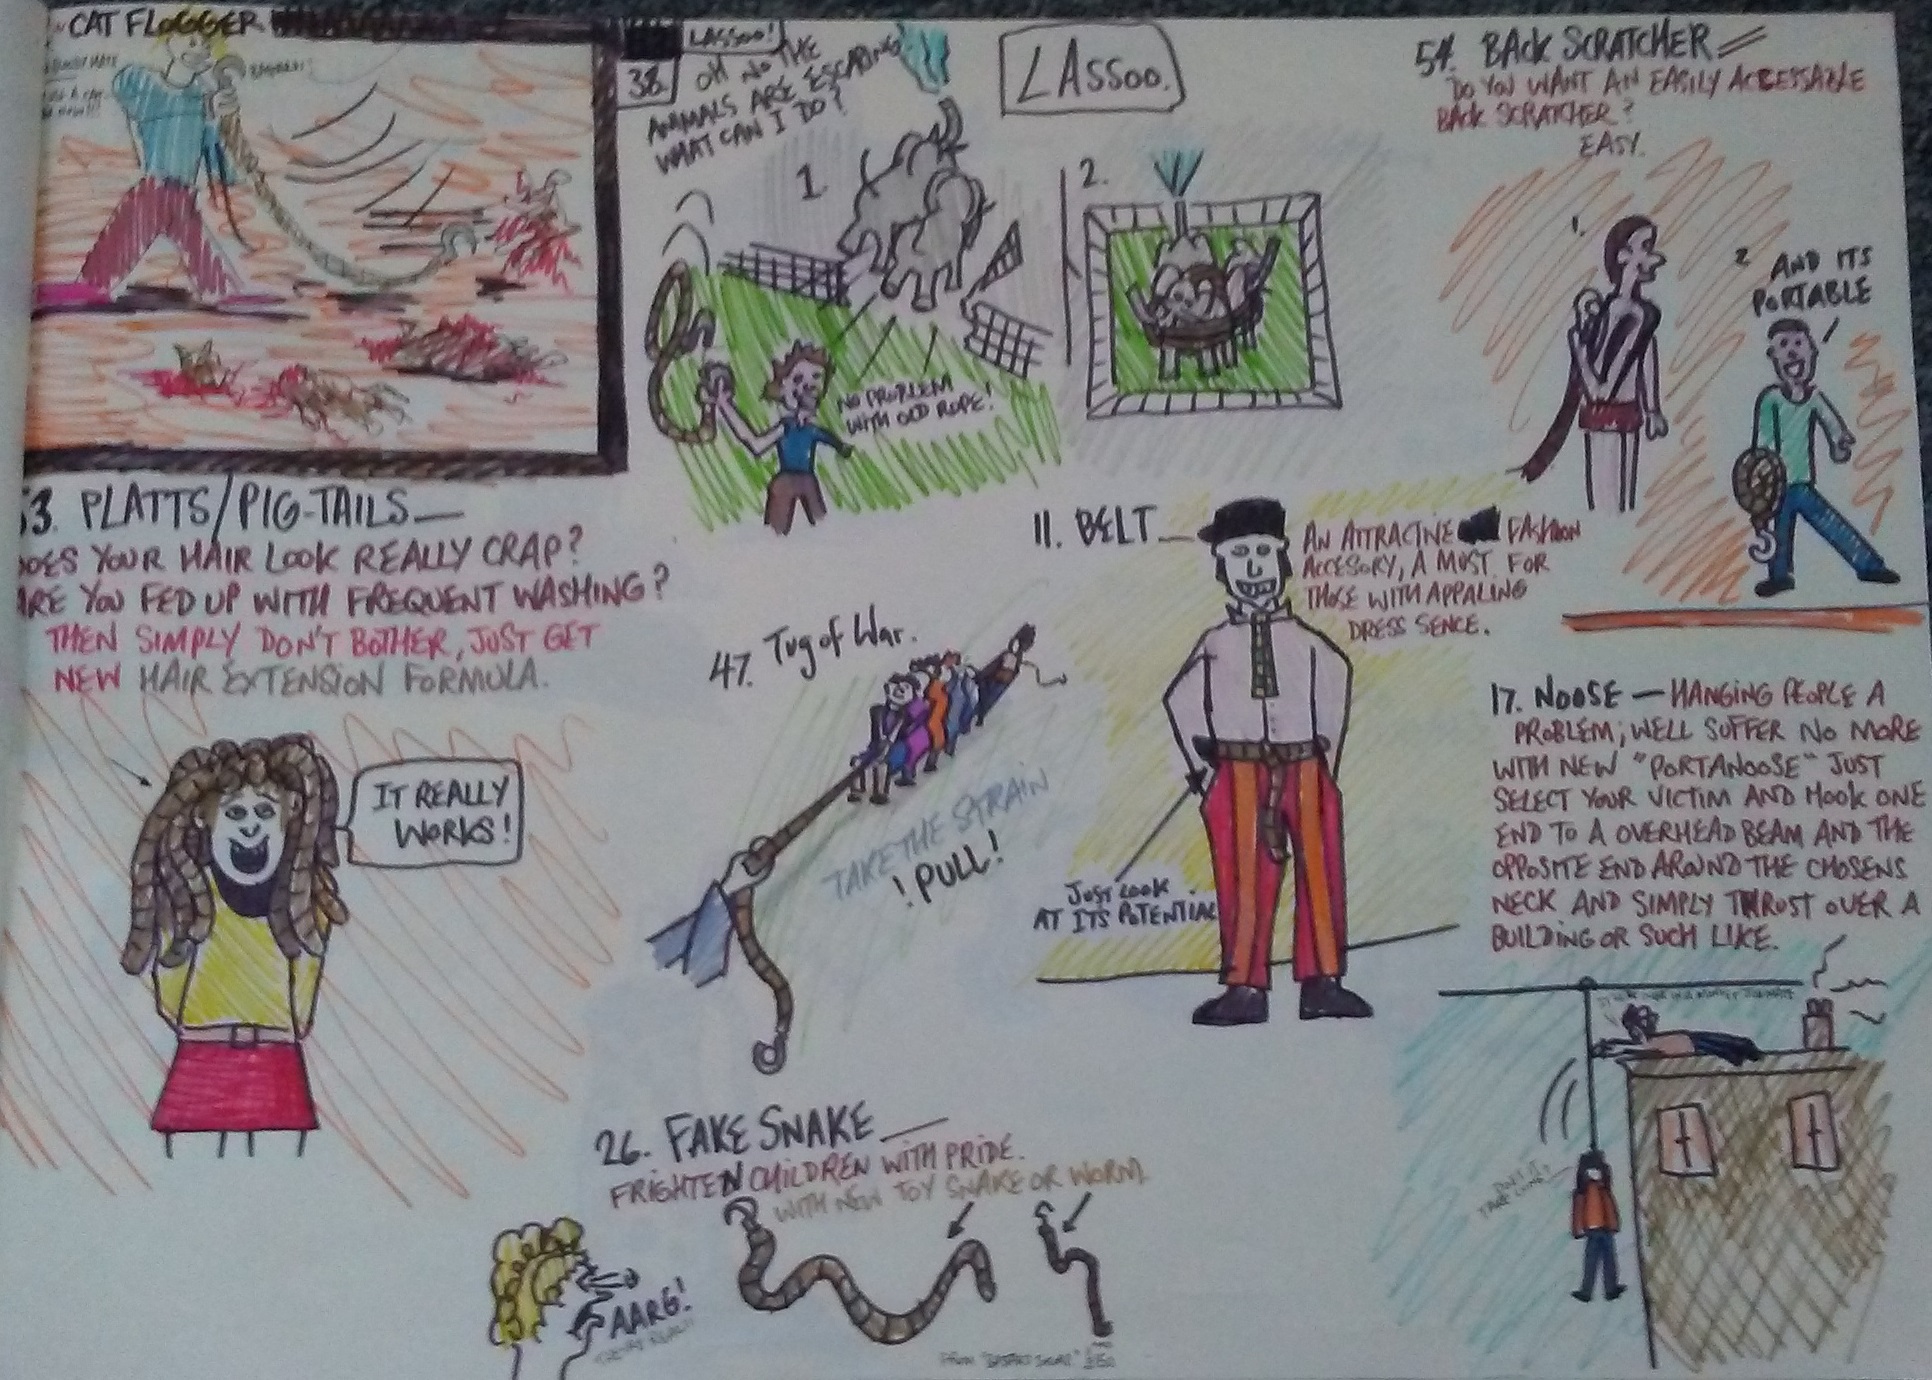 CAT FLOGGER
LASSOO!
38.
OH NO THE
ANIMALS ARE ESCAPING!
WHAT CAN I DO?
1.
NO PROBLEM
WITH OLD ROPE!
LASSOO.
2.
54. BACK SCRATCHER
DO YOU WANT AN EASILY ACCESSABLE
BACK SCRATCHER?
EASY.
1.
2
AND ITS
PORTABLE
53. PLATTS/PIG-TAILS
DOES YOUR HAIR LOOK REALLY CRAP?
ARE YOU FED UP WITH FREQUENT WASHING?
THEN SIMPLY DON'T BOTHER, JUST GET
NEW HAIR EXTENSION FORMULA.
IT REALLY
WORKS!
47. Tug of War.
TAKE THE STRAIN
! PULL!
11. BELT
AN ATTRACTINE FASHION
ACCESORY, A MUST FOR
THOSE WITH APPALING
DRESS SENCE.
JUST LOOK
AT ITS POTENTIAL
17. NOOSE — HANGING PEOPLE A
PROBLEM; WELL SUFFER NO MORE
WITH NEW "PORTANOOSE" JUST
SELECT YOUR VICTIM AND HOOK ONE
END TO A OVERHEAD BEAM AND THE
OPPOSITE END AROUND THE CHOSENS
NECK AND SIMPLY THRUST OVER A
BUILDING OR SUCH LIKE.
DON'T
TAKE LONG!
26. FAKE SNAKE
FRIGHTEN CHILDREN WITH PRIDE.
WITH NEW TOY SNAKE OR WORM.
AARG!